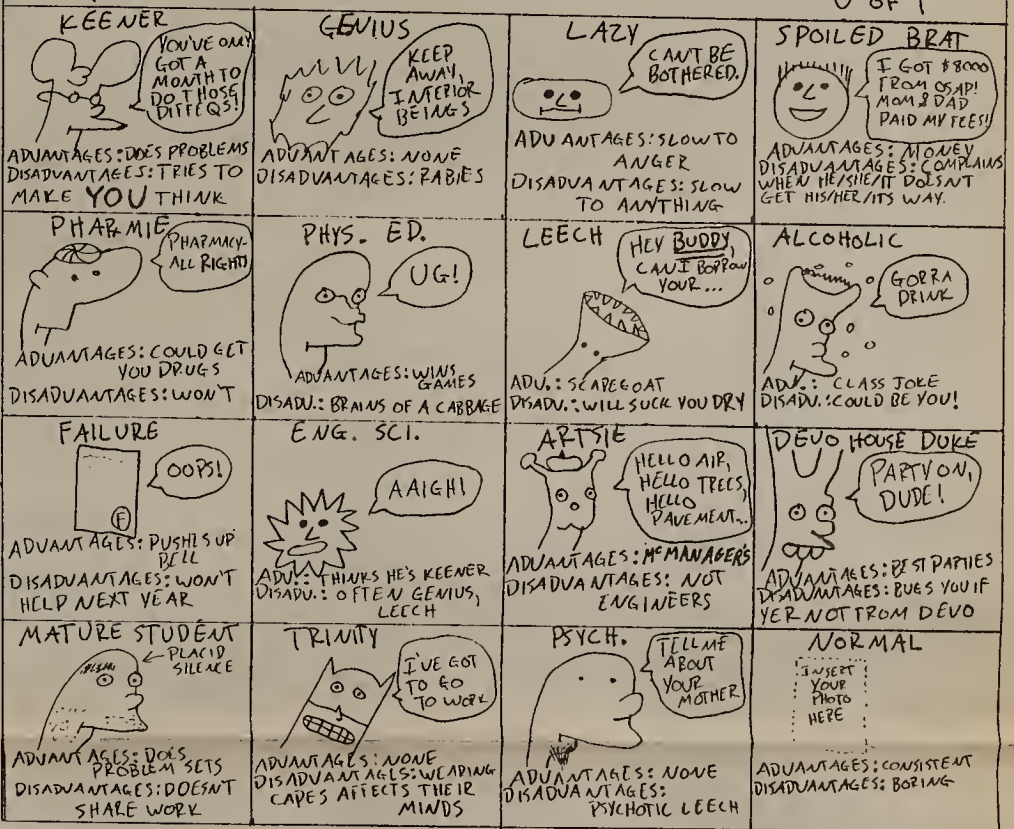 U OF T
KEENER
YOU'VE ONLY
GOT A
MONTH TO
DO THOSE
DIFFEQS!
ADVANTAGES: DOES PROBLEMS
DISADVANTAGES: TRIES TO
MAKE YOU THINK
GENIUS
KEEP
AWAY,
INFERIOR
BEINGS
ADVANTAGES: NONE
DISADVANTAGES: RABIES
LAZY
CAN'T BE
BOTHERED.
ADVANTAGES: SLOW TO
ANGER
DISADVANTAGES: SLOW
TO ANYTHING
SPOILED BRAT
I GOT $8000
FROM OSAP!
MOM & DAD
PAID MY FEES!
ADVANTAGES: MONEY
DISADVANTAGES: COMPLAINS
WHEN HE/SHE/IT DOESN'T
GET HIS/HER/ITS WAY.
PHARMIE
PHARMACY-
ALL RIGHT!
ADVANTAGES: COULD GET
YOU DRUGS
DISADVANTAGES: WON'T
PHYS. ED.
UG!
ADVANTAGES: WINS
GAMES
DISADV.: BRAINS OF A CABBAGE
LEECH
HEY BUDDY,
CAN I BORROW
YOUR...
ADV.: SCAPEGOAT
DISADV.: WILL SUCK YOU DRY
ALCOHOLIC
GORRA
DRINK
ADV.: CLASS JOKE
DISADV.: COULD BE YOU!
FAILURE
OOPS!
F
ADVANTAGES: PUSHES UP
BELL
DISADVANTAGES: WON'T
HELP NEXT YEAR
ENG. SCI.
AAIGH!
ADV.: THINKS HE'S KEENER
DISADV.: OFTEN GENIUS,
LEECH
ARTSIE
HELLO AIR,
HELLO TREES,
HELLO
PAVEMENT...
ADVANTAGES: McMANAGERS
DISADVANTAGES: NOT
ENGINEERS
DEVO HOUSE DUKE
PARTY ON,
DUDE!
ADVANTAGES: BEST PARTIES
DISADVANTAGES: BUGS YOU IF
YER NOT FROM DEVO
MATURE STUDENT
PLACID
SILENCE
ADVANTAGES: DOES
PROBLEM SETS
DISADVANTAGES: DOESN'T
SHARE WORK
TRINITY
I'VE GOT
TO GO
TO WORK
ADVANTAGES: NONE
DISADVANTAGES: WEARING
CAPES AFFECTS THEIR
MINDS
PSYCH.
TELL ME
ABOUT
YOUR
MOTHER
ADVANTAGES: NONE
DISADVANTAGES:
PSYCHOTIC LEECH
NORMAL
INSERT
YOUR
PHOTO
HERE
ADVANTAGES: CONSISTENT
DISADVANTAGES: BORING